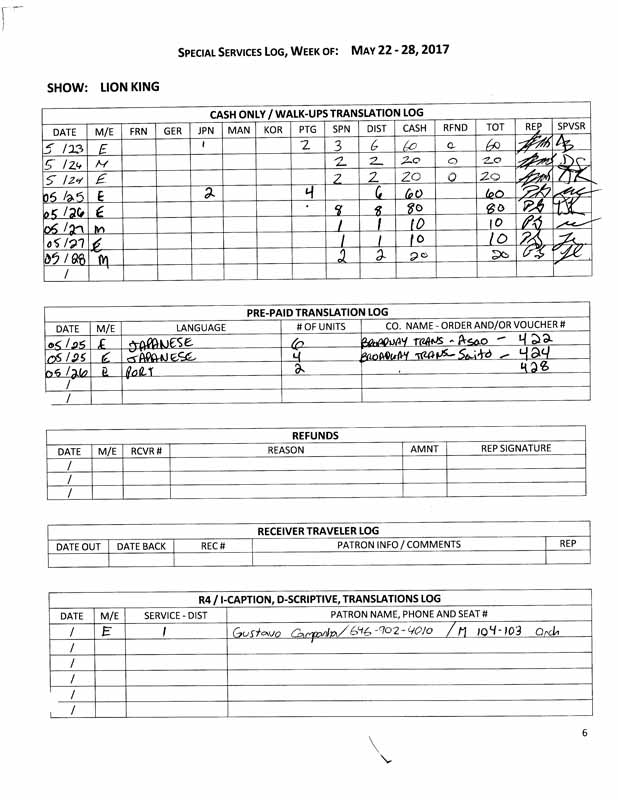 SPECIAL SERVICES LOG, WEEK OF: MAY 22 - 28, 2017
SHOW: LION KING
CASH ONLY / WALK-UPS TRANSLATION LOG
DATE M/E FRN GER JPN MAN KOR PTG SPN DIST CASH RFND TOT REP SPVSR
5 / 23 E 1 2 3 6 60 0 60
5 / 24 M 2 2 20 0 20
5 / 24 E 2 2 20 0 20
05 / 25 E 2 4 6 60 60
05 / 26 E 8 8 80 80
05 / 27 M 1 1 10 10
05 / 27 E 1 1 10 10
05 / 28 M 2 2 20 20
/
PRE-PAID TRANSLATION LOG
DATE M/E LANGUAGE # OF UNITS CO. NAME - ORDER AND/OR VOUCHER #
05 / 25 E JAPANESE 6 BROADWAY TRANS - Asao - 422
05 / 25 E JAPANESE 4 BROADWAY TRANS - Saito - 424
05 / 26 PORT 2 428
/
/
REFUNDS
DATE M/E RCVR # REASON AMNT REP SIGNATURE
/
/
/
RECEIVER TRAVELER LOG
DATE OUT DATE BACK REC # PATRON INFO / COMMENTS REP
R4 / I-CAPTION, D-SCRIPTIVE, TRANSLATIONS LOG
DATE M/E SERVICE - DIST PATRON NAME, PHONE AND SEAT #
/ E 1 Gustavo / 646-902-4010 / M 104-103 Orch
/
/
/
/
/
6